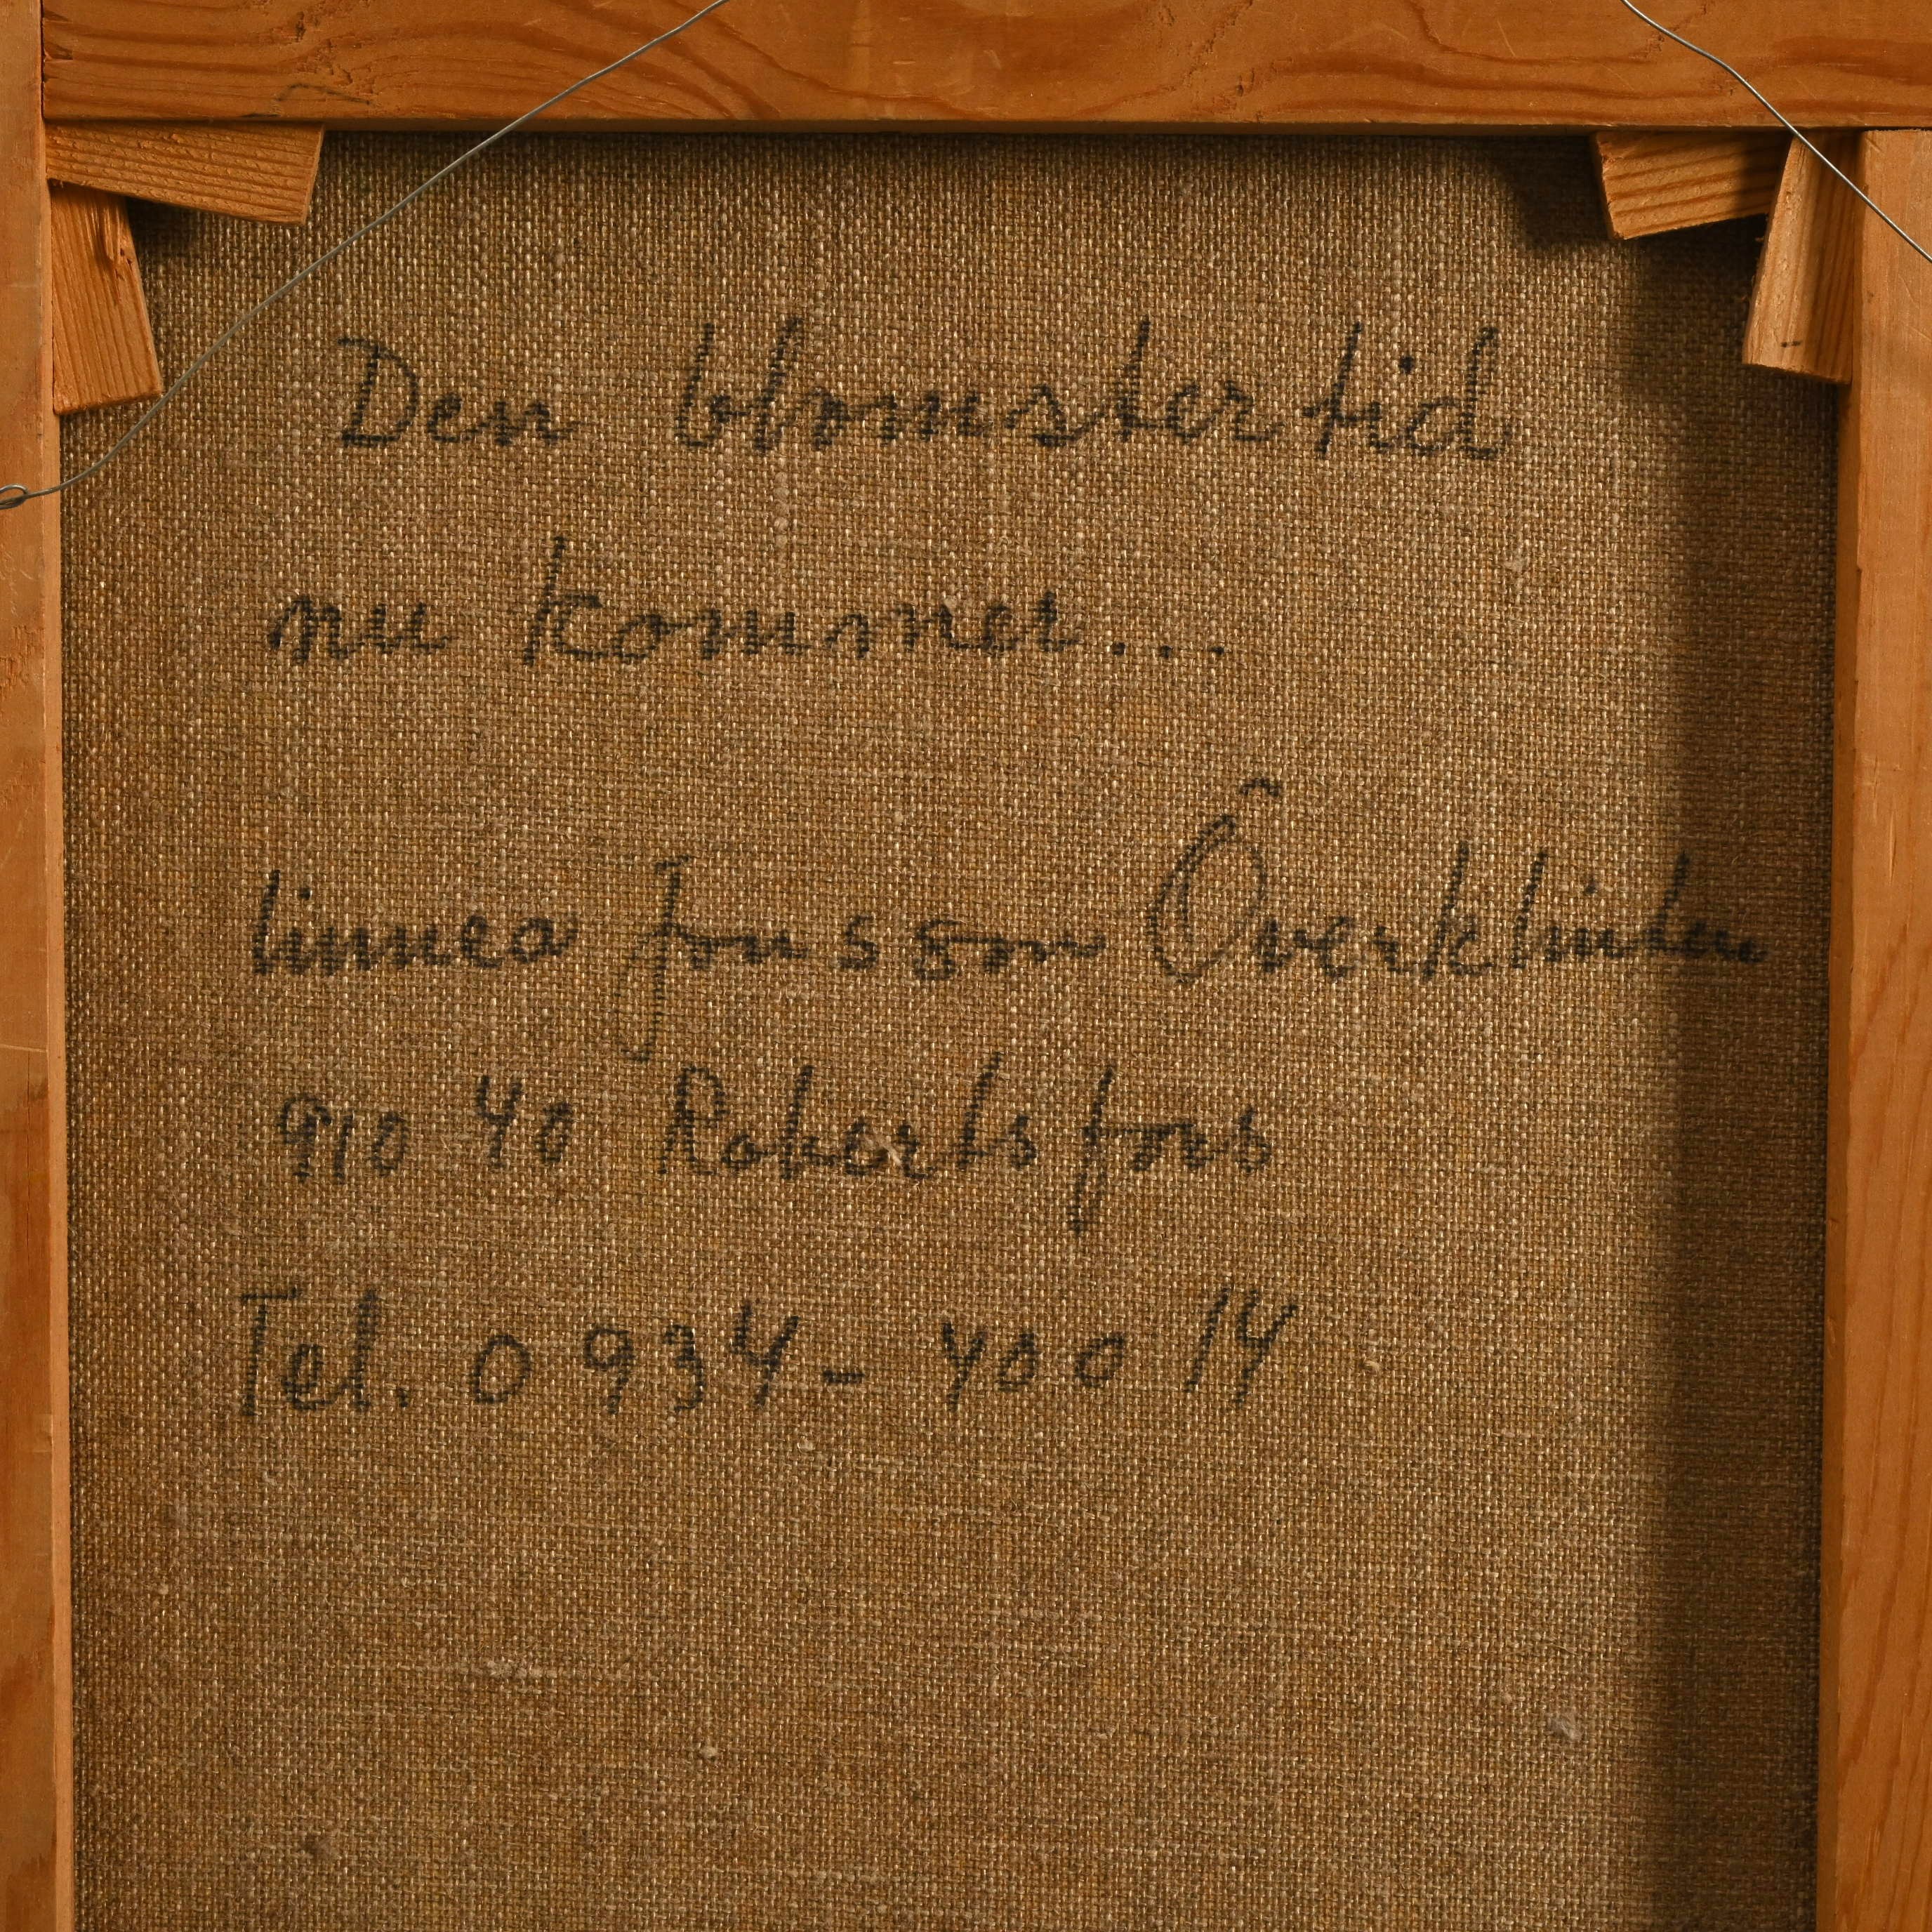 Den blomstertid
nu kommer...
linnea Jonsson Överklinten
910 40 Robertsfors
Tel. 0934-400 14